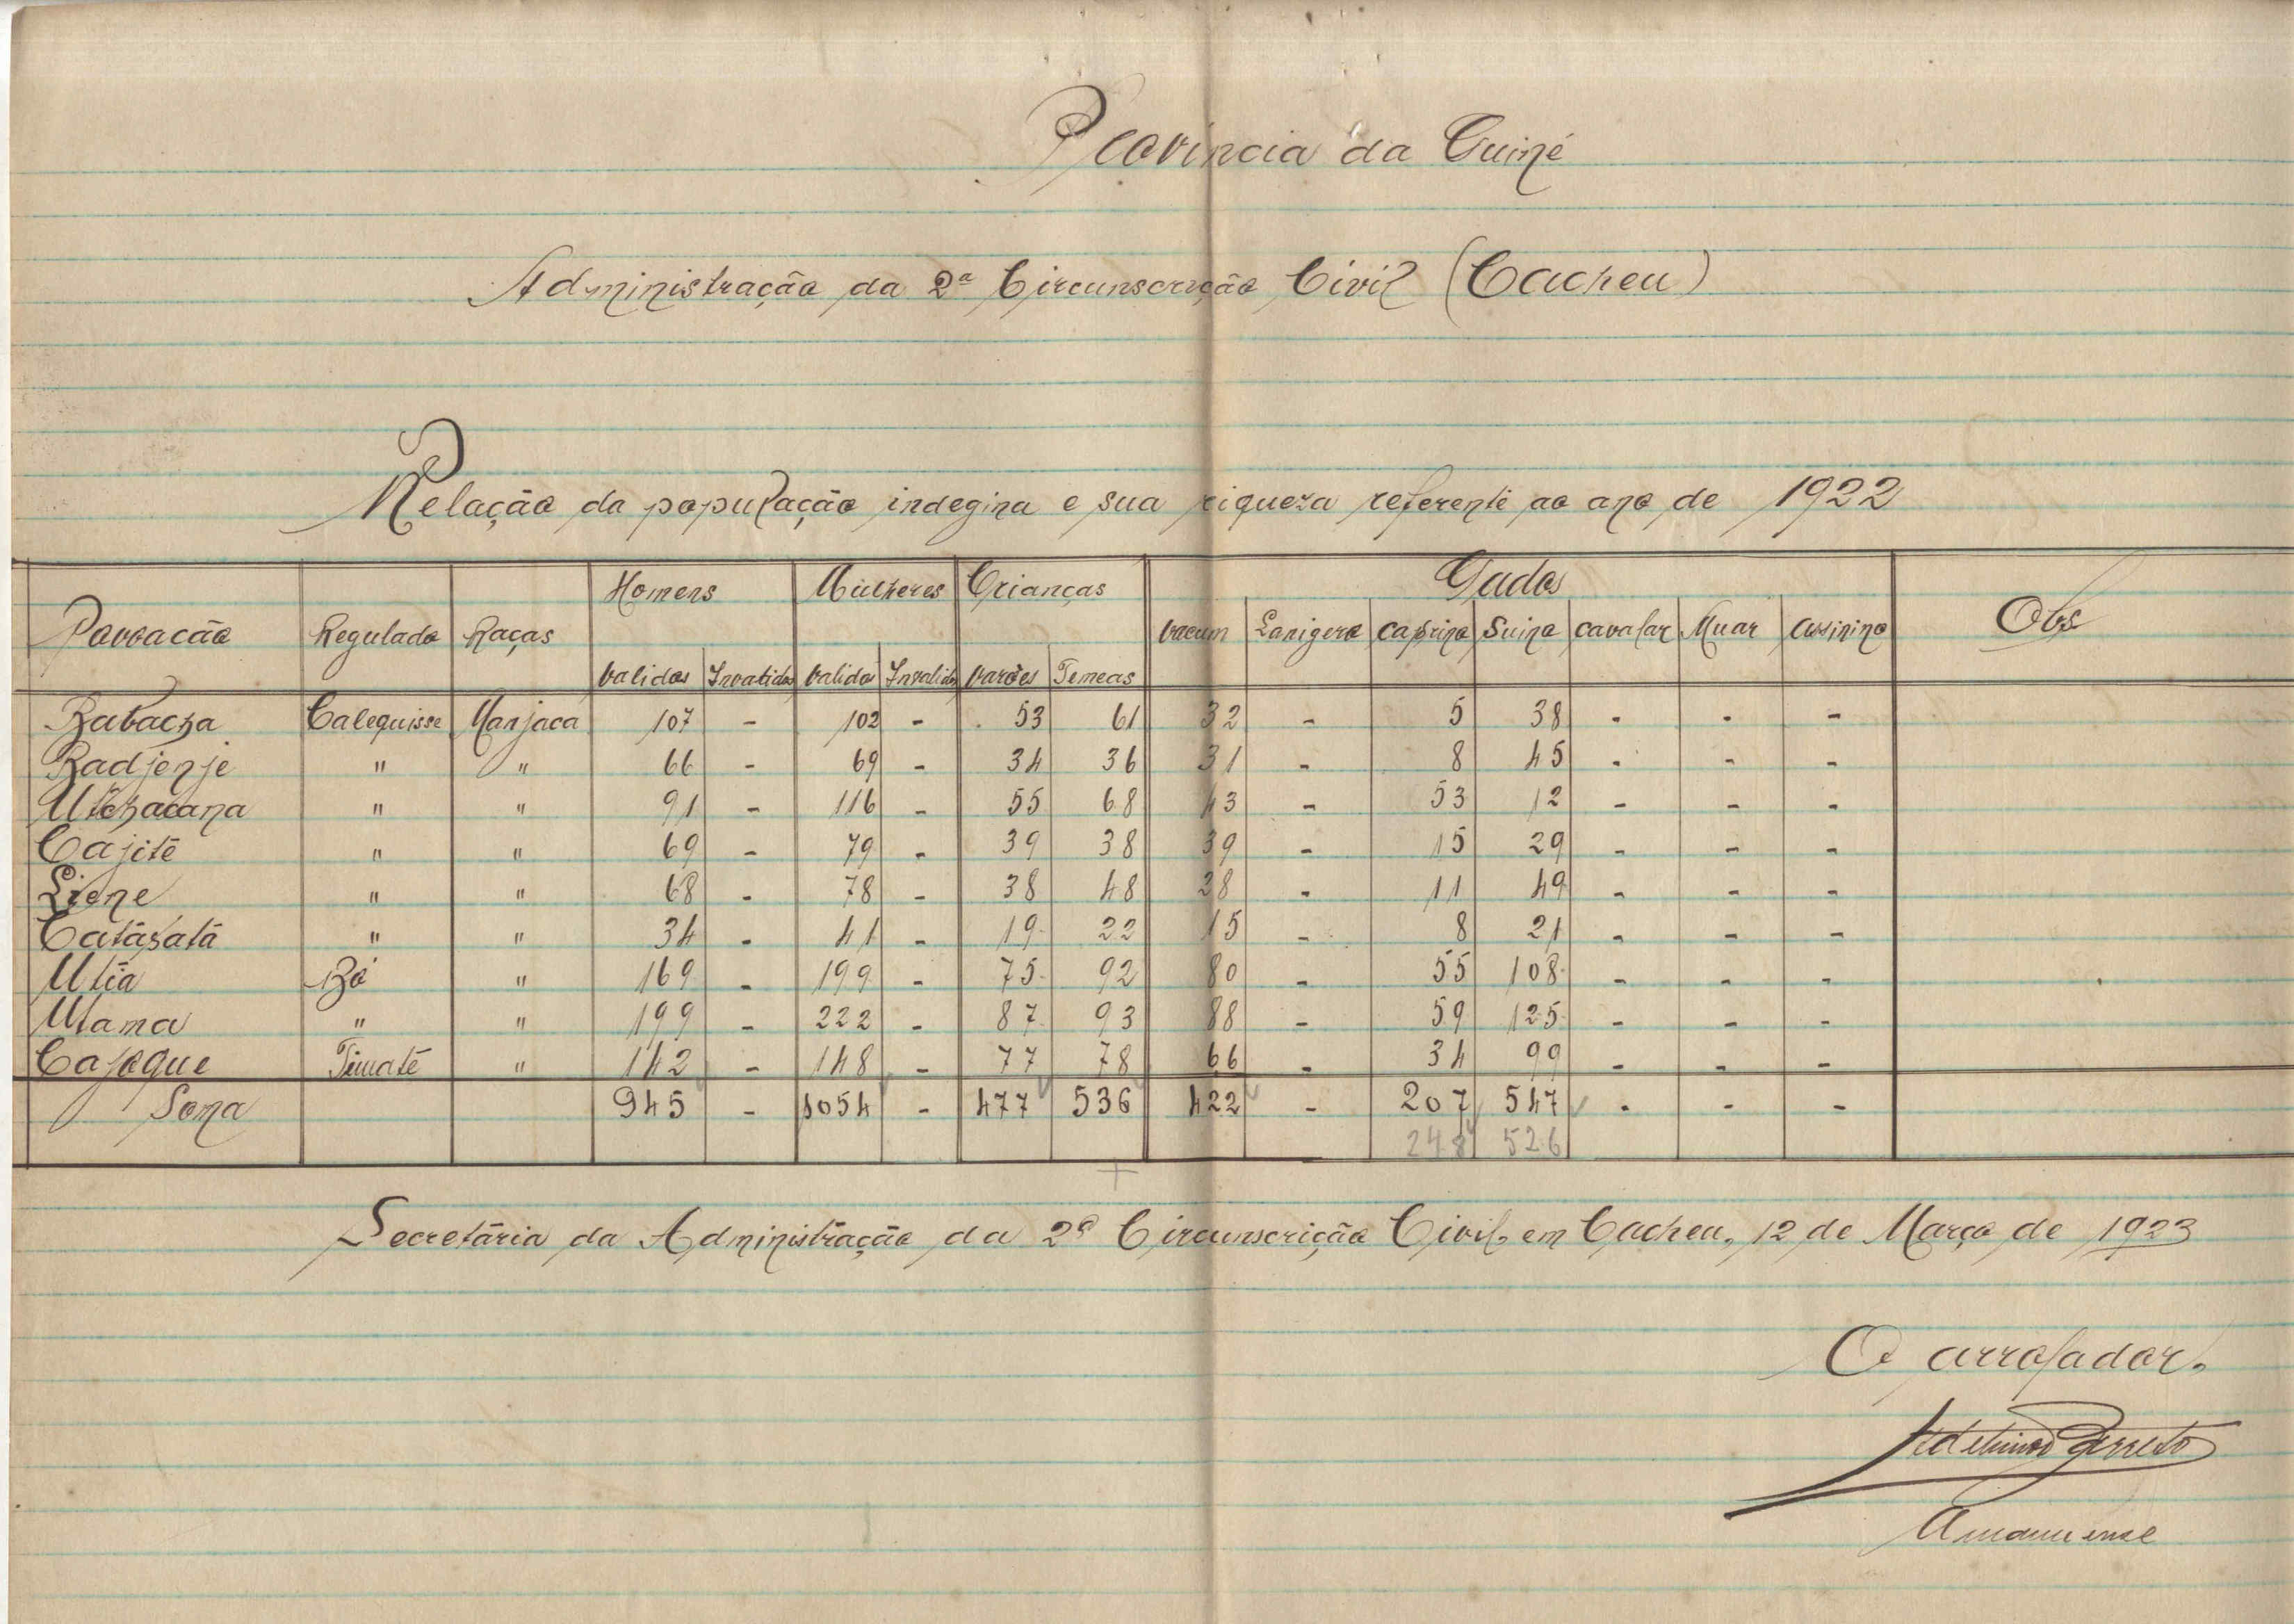 Provincia da Guiné
Administração da 2ª Circunscrição Civil (Cacheu)
Relação da população indegina e sua riqueza referente ao ano de 1922
Homens Mulheres Crianças Gados
Povoacão Regulado Raças vacum Lanigero caprino suino cavalar Muar assinino Obs
validos Invalidos validos Invalidos varões Femeas
Babacha Calequisse Manjaca 107 - 102 - 53 61 32 - 5 38 - - -
Badjenje " " 66 - 69 - 34 36 31 - 8 45 - - -
Utchacana " " 91 - 116 - 55 68 43 - 53 12 - - -
Cajitê " " 69 - 79 - 39 38 39 - 15 29 - - -
Liene " " 68 - 78 - 38 48 28 - 11 49 - - -
Catásatá " " 34 - 41 - 19 22 15 - 8 21 - - -
Utia Bó " 169 - 199 - 75 92 80 - 55 108 - - -
Utama " " 199 - 222 - 87 93 88 - 59 125 - - -
Cajoque Timatê " 142 - 148 - 77 78 66 - 34 99 - - -
Soma 945 - 1054 - 477 536 422 - 207 547 - - -
248 526
Secretária da Administração da 2ª Circunscrição Civil em Cacheu, 12 de Março de 1923
O arrolador.
Barreto
Amanuense